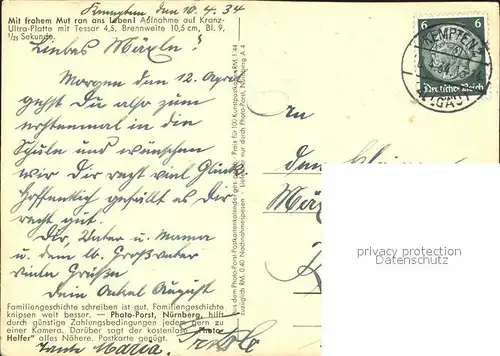 Kempten den 10.4.34
Mit frohem Mut ran ans Leben! Aufnahme auf Kranz-
Ultra-Platte mit Tessar 4,5, Brennweite 10,5 cm, Bl. 9,
1/25 Sekunde.
Liebes Mäxle!
Morgen den 12. April
gehst Du also zum
erstenmal in die
Schule und wünschen
wir Dir recht viel Glück
Hoffentlich gefällt es Dir
recht gut.
Dir, Vater u. Mama
u. dem lb. Großvater
viele Grüße
Dein Onkel August
Familiengeschichte schreiben ist gut. Familiengeschichte
knipsen weit besser. — Photo-Porst, Nürnberg, hilft
durch günstige Zahlungsbedingungen jedem gern zu
einer Kamera. Darüber sagt der kostenlose "Photo-
Helfer" alles Nähere. Postkarte genügt.
Tante Maria.
Aus dem Photo-Porst-Postkartenkalender ges. gesch. Preis für 100 Kunstpostkarten RM. 1.44
zuzüglich RM. 0.40 Nachnahmespesen · Lieferbar nur durch Photo-Porst, Nürnberg A 4
6 6
Deutsches Reich
KEMPTEN
(ALLGÄU)
An
den kleinen
privacy protection
Oldthing.com